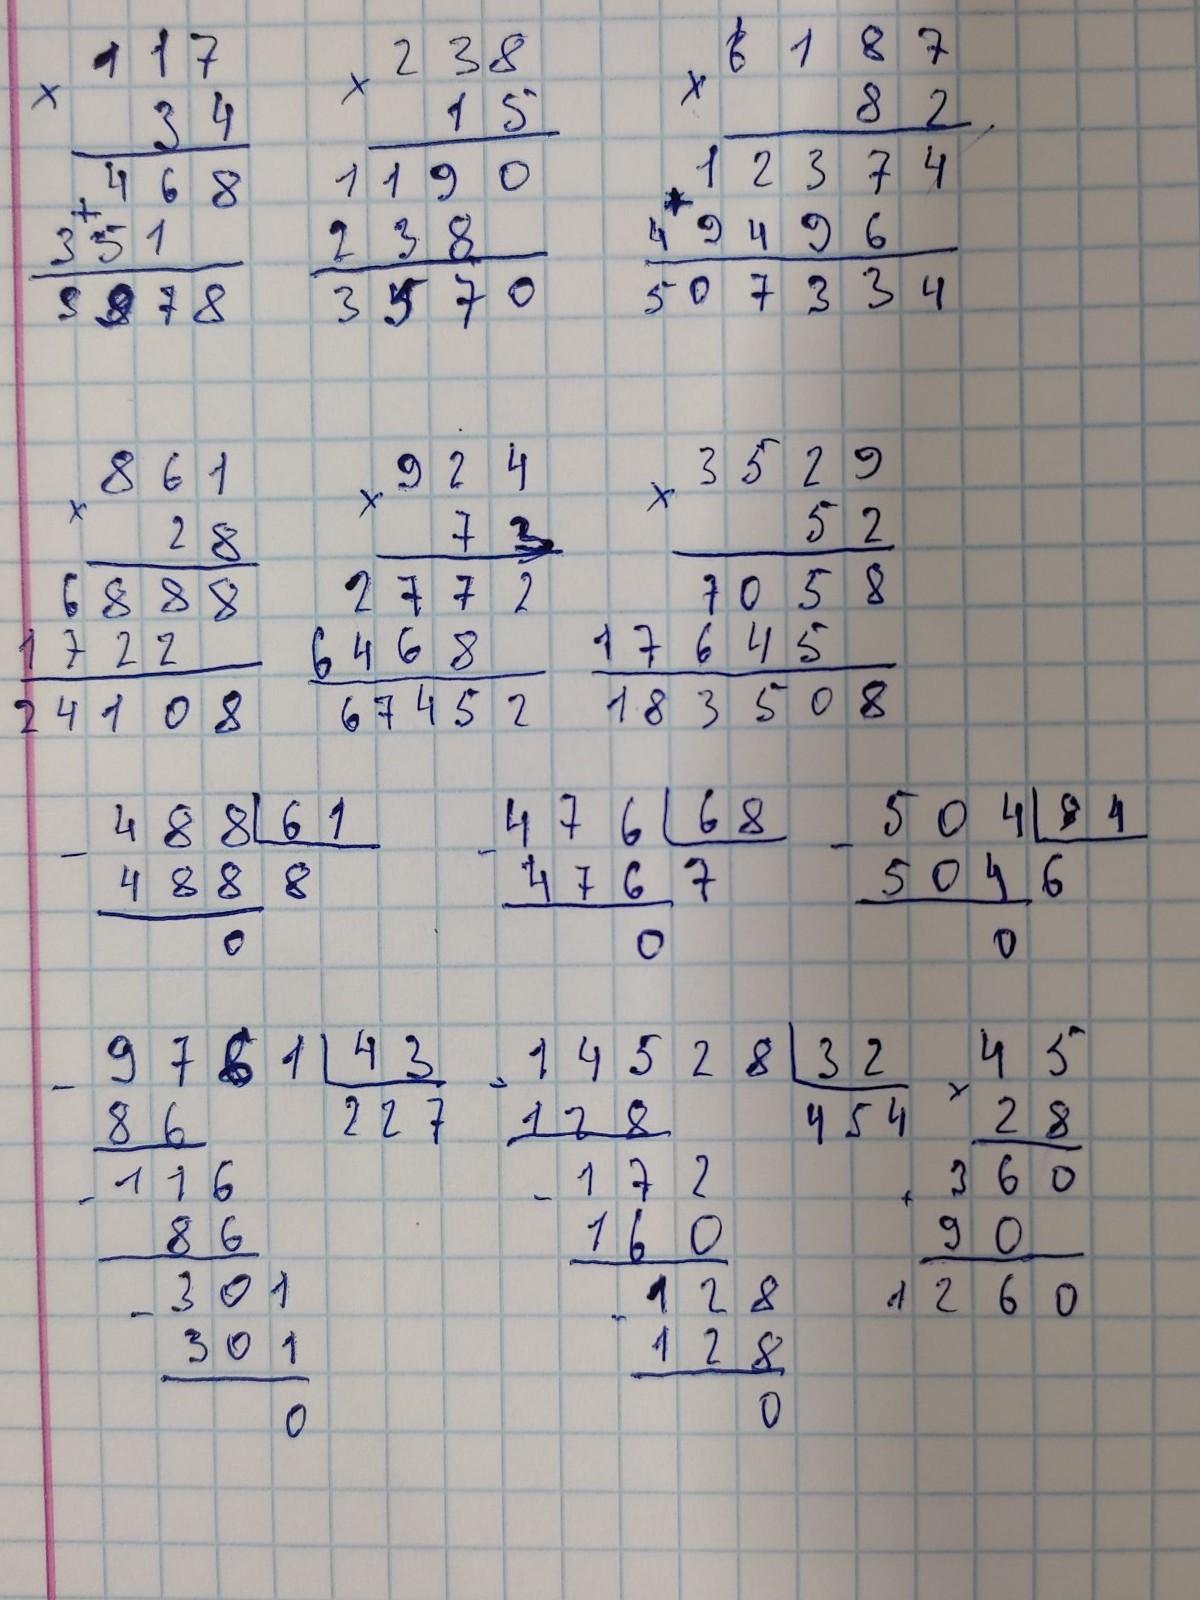 117 238 6187
× 34 × 15 × 82
468 1190 12374
+ 351 238 + 49496
3978 3570 507334
861 924 3529
× 28 × 73 × 52
6888 2772 7058
1722 6468 17645
24108 67452 183508
- 488 61 - 476 68 - 504 84
488 8 476 7 504 6
0 0 0
- 9761 43 - 14528 32 × 45
86 227 128 454 28
- 116 - 172 + 360
86 160 90
- 301 - 128 1260
301 128
0 0